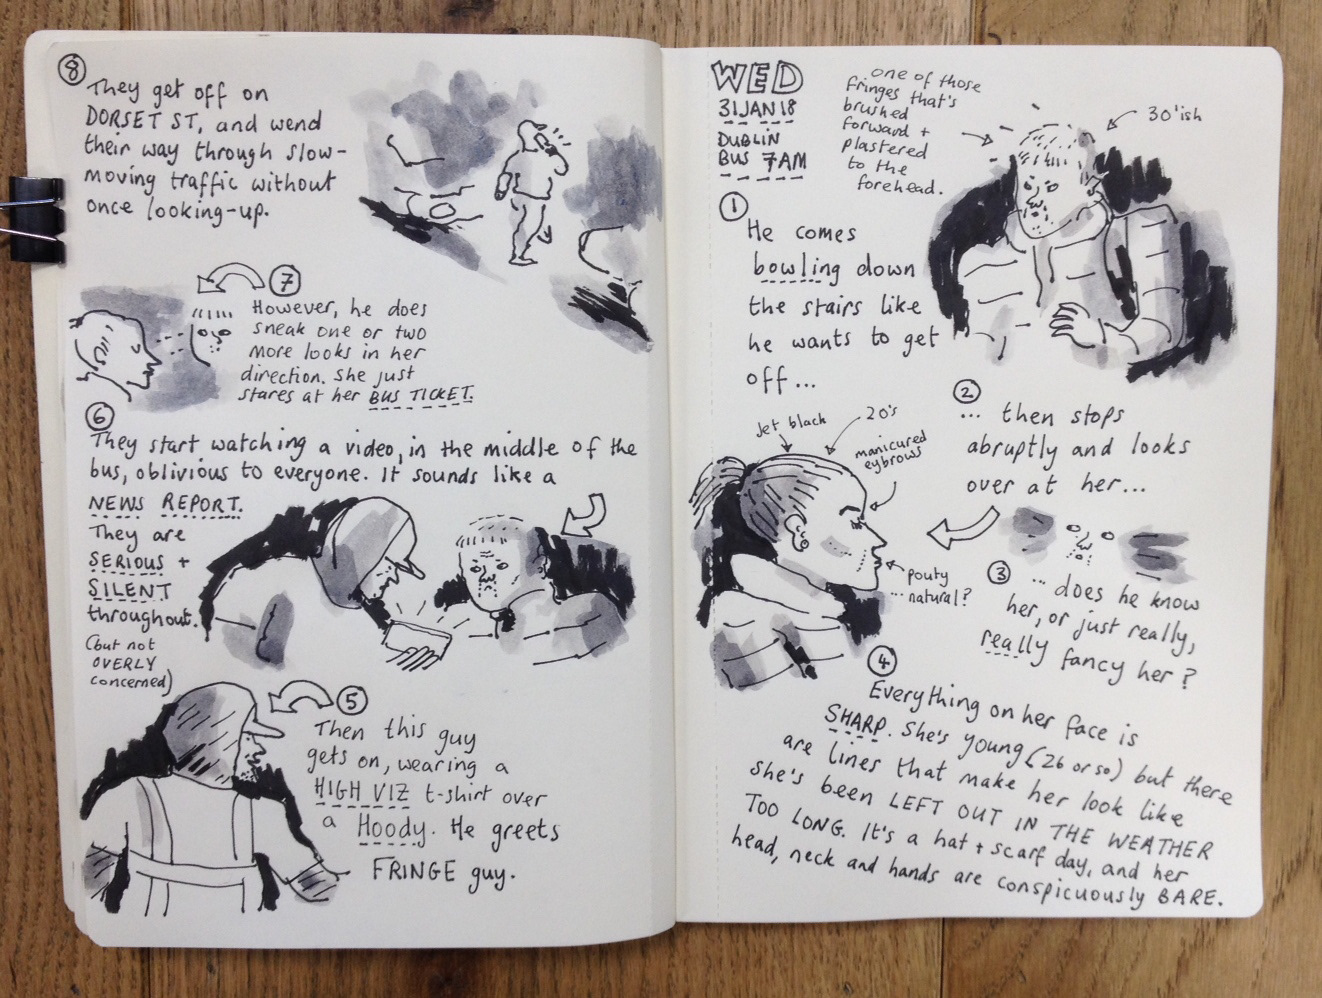 8
They get off on
DORSET ST, and wend
their way through slow-
moving traffic without
once looking-up.
7
However, he does
sneak one or two
more looks in her
direction. She just
stares at her BUS TICKET.
6
They start watching a video, in the middle of the
bus, oblivious to everyone. It sounds like a
NEWS REPORT.
They are
SERIOUS +
SILENT
throughout.
(but not
OVERLY
concerned)
5
Then this guy
gets on, wearing a
HIGH VIZ t-shirt over
a Hoody. He greets
FRINGE guy.
WED
31JAN18
DUBLIN
BUS 7AM
one of those
fringes that's
brushed
forward +
plastered
to the
forehead.
30'ish
1
He comes
bowling down
the stairs like
he wants to get
off...
2
... then stops
abruptly and looks
over at her...
Jet black
20's
manicured
eybrows
pouty
... natural?
3
... does he know
her, or just really,
really fancy her?
4
Everything on her face is
SHARP. She's young (26 or so) but there
are lines that make her look like
she's been LEFT OUT IN THE WEATHER
TOO LONG. It's a hat + scarf day, and her
head, neck and hands are conspicuously BARE.